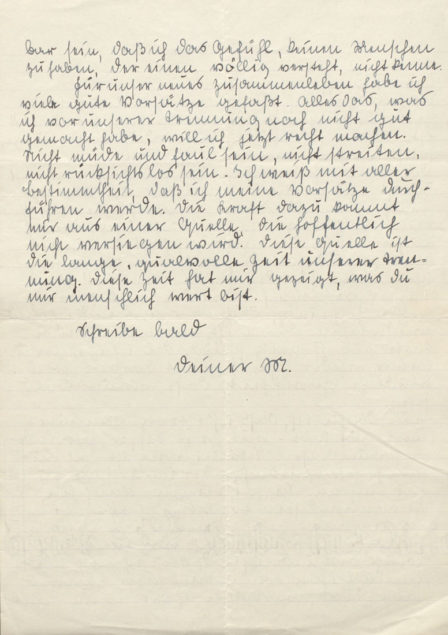 bar sein, daß ich das Gefühl, keinen Menschen
zu haben, der einen völlig versteht, nicht kenne.
Für unser neues Zusammenleben habe ich
viele gute Vorsätze gefaßt. Alles das, was
ich vor unserer Trennung noch nicht gut
gemacht habe, will ich jetzt recht machen.
Nicht müde und faul sein, nicht streiten,
nicht rücksichtslos sein. Ich weiß mit aller
Bestimmtheit, daß ich meine Vorsätze durch-
führen werde. Die Kraft dazu kommt
mir aus einer Quelle, die hoffentlich
nicht versiegen wird. Diese Quelle ist
die lange, qualvolle Zeit unserer Tren-
nung. Diese Zeit hat mir gezeigt, was du
mir menschlich wert bist.
Schreibe bald
Deiner M.